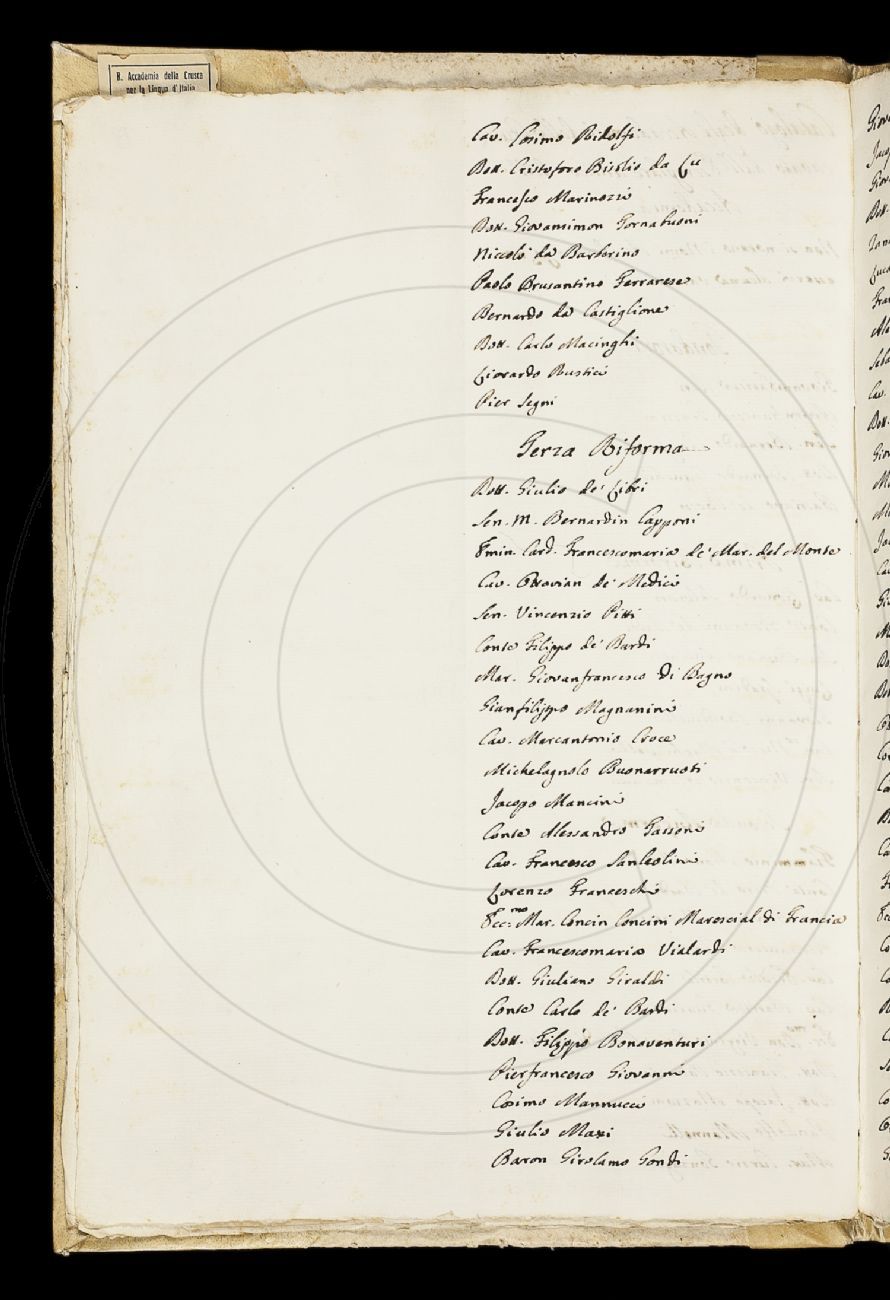 R. Accademia della Crusca
per la Lingua d'Italia
Cav. Cosimo Ridolfi
Dott. Cristoforo
Francesco Marinozzi
Dott. Giovansimon Tornabuoni
Niccolò da Barberino
Paolo Brusantino Ferrarese
Bernardo da Castiglione
Dott. Carlo Macinghi
Lionardo Rustici
Pier Segni
Terza Riforma
Dott. Giulio de' Libri
Sen. M. Bernardin Capponi
Emin. Card. Francescomaria de' Mar. del Monte
Cav. Ottavian de' Medici
Sen. Vincenzio Pitti
Conte Filippo de' Bardi
Mar. Giovanfrancesco di Bagno
Gianfilippo Magnanini
Cav. Marcantonio Croce
Michelagnolo Buonarruoti
Jacopo Mancini
Conte Alessandro Tassoni
Cav. Francesco Sanleolini
Lorenzo Franceschi
Ecc.mo Mar. Concin Concini Marescial di Francia
Cav. Francescomaria Vialardi
Dott. Giuliano Giraldi
Conte Carlo de' Bardi
Dott. Filippo Bonaventuri
Pierfrancesco Giovanni
Cosimo Mannucci
Giulio Mazi
Baron Girolamo Gondi